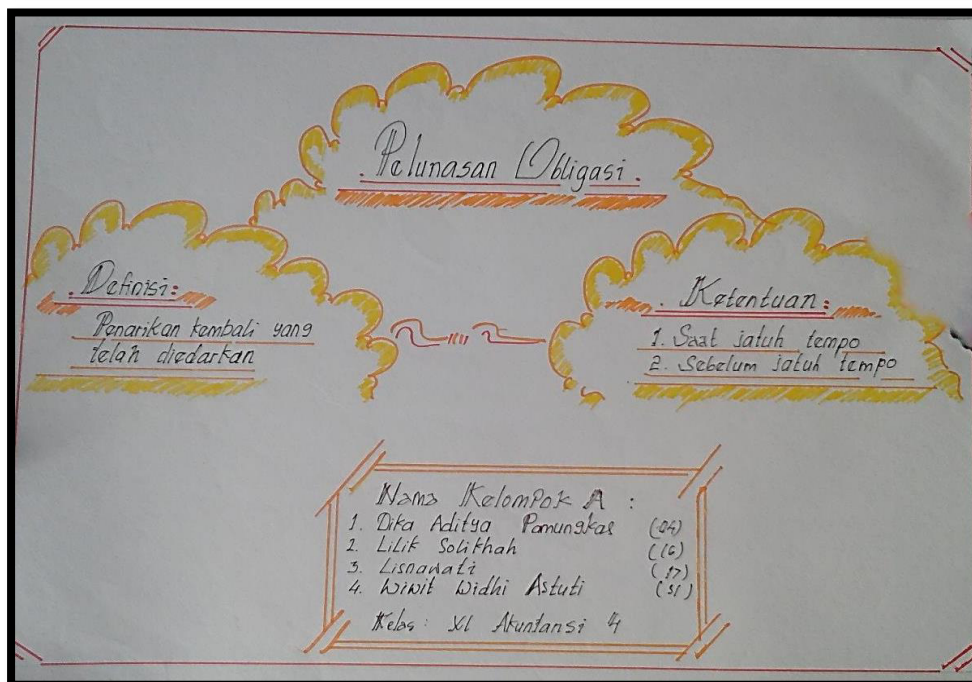 . Pelunasan Obligasi .
. Definisi :
Penarikan kembali yang
telah diedarkan
. Ketentuan :
1. Saat jatuh tempo
2. Sebelum jatuh tempo
Nama Kelompok A :
1. Dika Aditya Pamungkas (04)
2. Lilik Solikhah (16)
3. Lisnawati (17)
4. Wiwit Widhi Astuti (31)
Kelas : XI Akuntansi 4